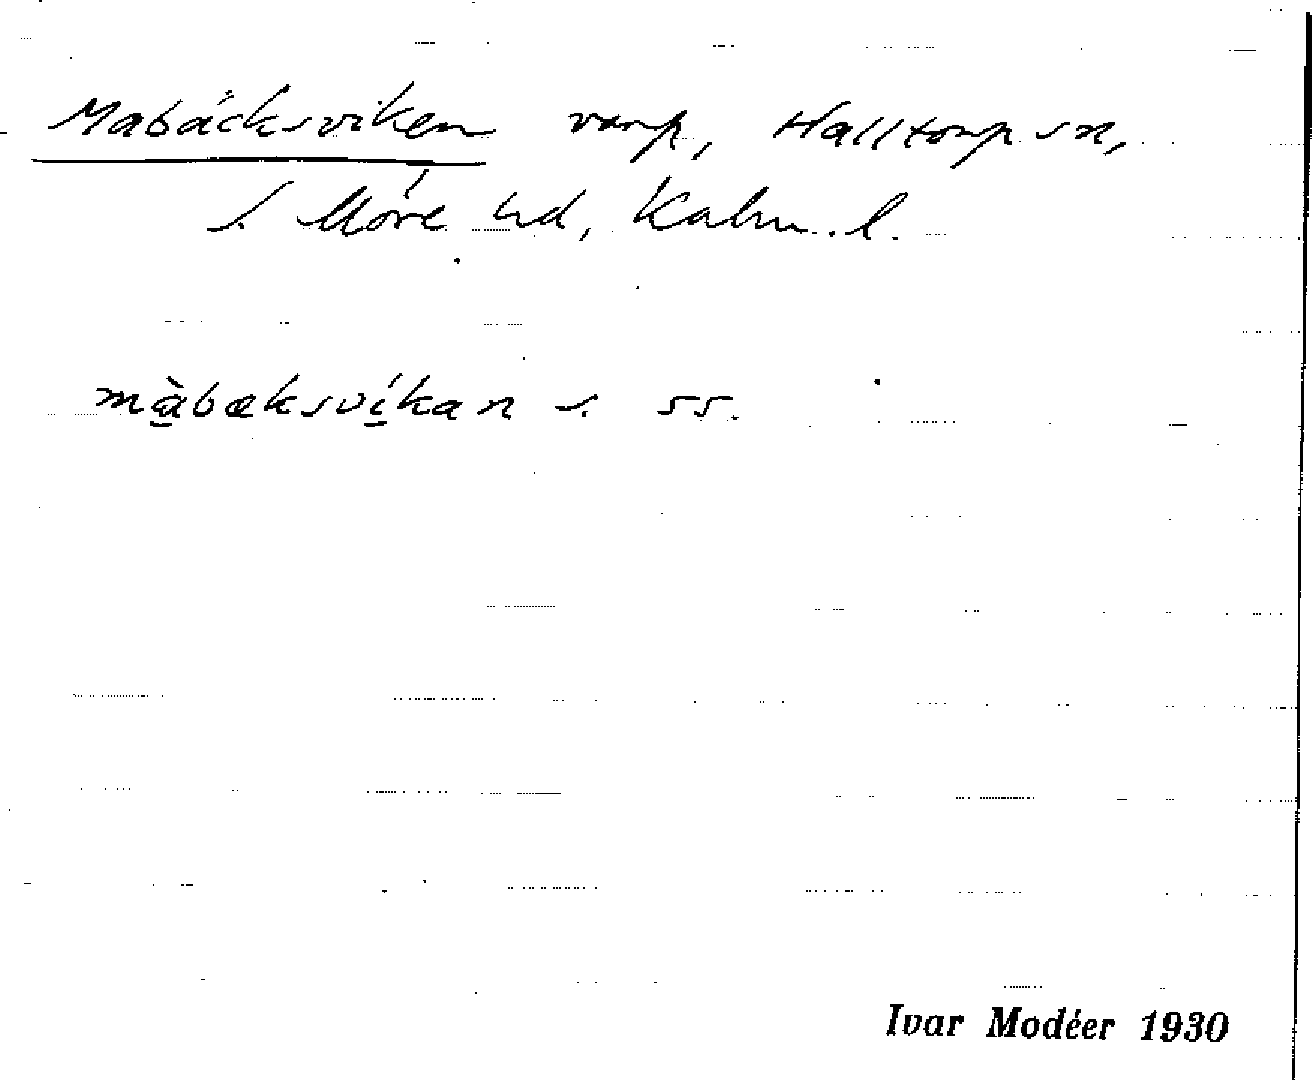 Mabäcksviken varp, Halltorp sn,
S. Möre hd, Kalm. l.
mà̱bæksví̱kan s. 55.
Ivar Modéer 1930